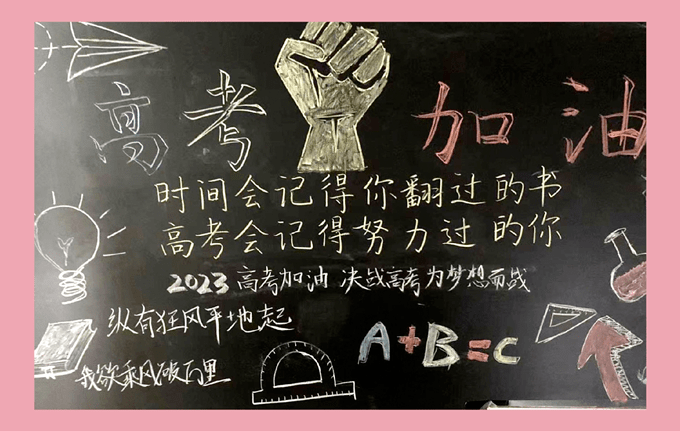 高考 加油
时间会记得你翻过的书
高考会记得努力过的你
2023高考加油 决战高考为梦想而战
纵有狂风平地起
我欲乘风破万里
A+B=C